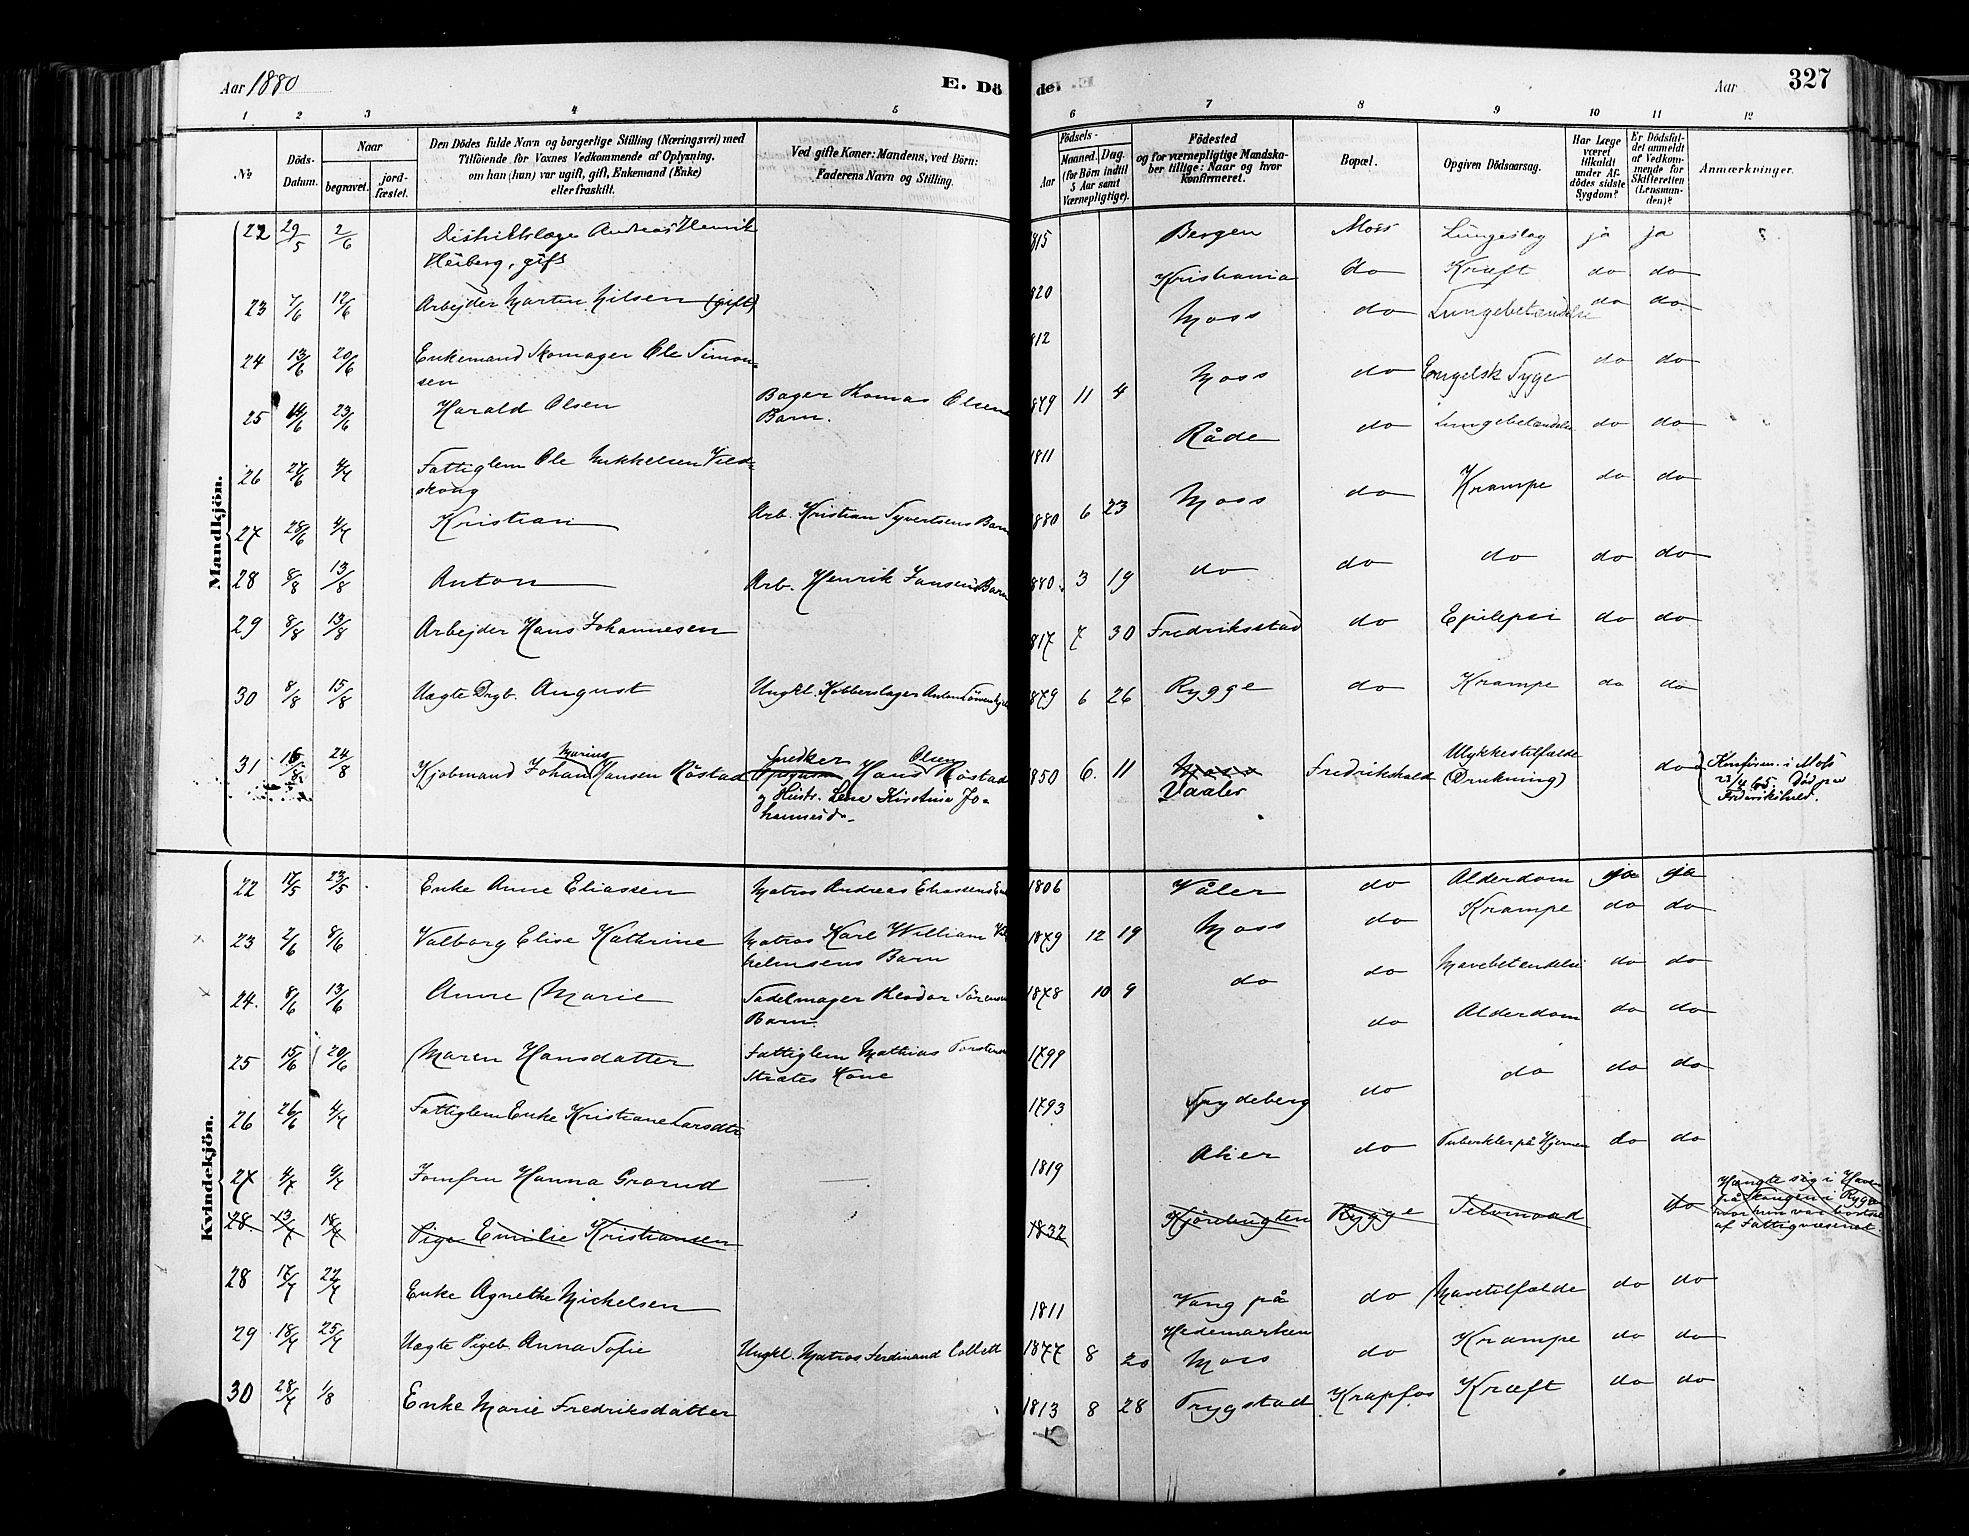 Aar 1880
E. Dö
de.
Aar
327
1 2 3 4 5 6 7 8 9 10 11 12
№
Döds-Datum.
Naar
begravet.
jord-fæstet.
Den Dödes fulde Navn og borgerlige Stilling (Næringsvei) med
Tilföiende for Voxnes Vedkommende af Oplysning,
om han (hun) var ugift, gift, Enkemand (Enke)
eller fraskilt.
Ved gifte Koner: Mandens, ved Börn:
Faderens Navn og Stilling.
Födsels-
Aar
Maaned. Dag.
(for Börn indtil
5 Aar samt
Værnepligtige).
Födested
og for værnepligtige Mandska-
ber tillige: Naar og hvor
konfirmeret.
Bopæl.
Opgiven Dödsaarsag.
Har Læge
været
tilkaldt
under Af-
dödes sidste
Sygdom?
Er Dödsfal-
det anmeldt
af Vedkom-
mende for
Skifteretten
(Lensman-
den)?
Anmærkninger.
Mandkjön.
22 29/5 2/6 Distriktslæge Andreas Henrik 815 Bergen Moss Lungeslag ja ja
Heiberg, gift
23 7/6 12/6 Arbejder Martin Nilsen (gift) 820 Kristiania do Kræft do do
24 13/6 20/6 Enkemand Skomager Ole Simon- 812 Moss do Lungebetændelse do do
sen
25 14/6 23/6 Harald Olsen Bager Thomas Olsens 1879 11 4 Moss do Engelsk Syge do do
Barn.
26 27/6 4/7 Fattiglem Ole Mikkelsen Vild- 1811 Råde do Lungebetændelse do do
skoug
27 28/6 4/7 Kristian Arb. Kristian Syvertsens Barn 1880 6 23 Moss do Krampe do do
28 8/8 13/8 Anton Arb. Henrik Jansens Barn 1880 3 19 do do do do do
29 8/8 13/8 Arbejder Hans Johannesen 817 7 30 Fredriksstad do Epilepsi do do
30 8/8 15/8 Uægte Drgb. August Ungkl. Kobberslager Anton 1879 6 26 Rygge do Krampe do do
31 16/8 24/8 Kjøbmand Johan Marius Hansen Röstad Snedker Hans Olsen Röstad 1850 6. 11 Moss Fredrikshald Ulykkestilfælde do Konfirm. i Moss
og Hustr. Lene Kirstine Jo- Vaaler (Drukning) 23/4 65. Død paa
hannesd. Fredrikshald.
Kvindekjön.
22 17/5 23/5 Enke Anne Eliassen Matros Andreas Eliassens 1806 Våler do Alderdom ja ja
23 2/6 8/6 Valborg Elise Kathrine Matros Karl William Vil 1879 12 19 Moss do Krampe do do
helmsens Barn
24. 8/6 13/6 Anne Marie Sadelmager Theodor Sörensen 1878 10 9 do do Mavebetændelse do do
Barn
25 15/6 20/6 Maren Hansdatter Fattiglem Mathias 1799 do Alderdom do do
Strætes Kone
26 26/6 4/7 Fattiglem Enke Kristiane Larsdtr 1793 Spydeberg do do do do
27 4/7 9/7 Jomfru Hanna Grorud 1819 Aker do Tuberkler på Hjernen do do
28 13/7 18/7 Pige Emilie Kristiansen 1832 Rygge Selvmord do Hængte sig i Haven
på Skougen i Rygge
hvor hun var bortsat
af Fattigvæsenet.
28 17/7 22/7 Enke Agnethe Mickelsen 1811 Vang på do Mavetilfælde do do
Hedemarken
29 18/7 25/7 Uægte Pigeb. Anna Sofie Ungkl. Matros Ferdinand Collett 1877 8 20 Moss do Krampe do do
30 28/7 1/8 Enke Marie Fredriksdatter 1813 8 28 Trygstad Krapfos Kræft do do